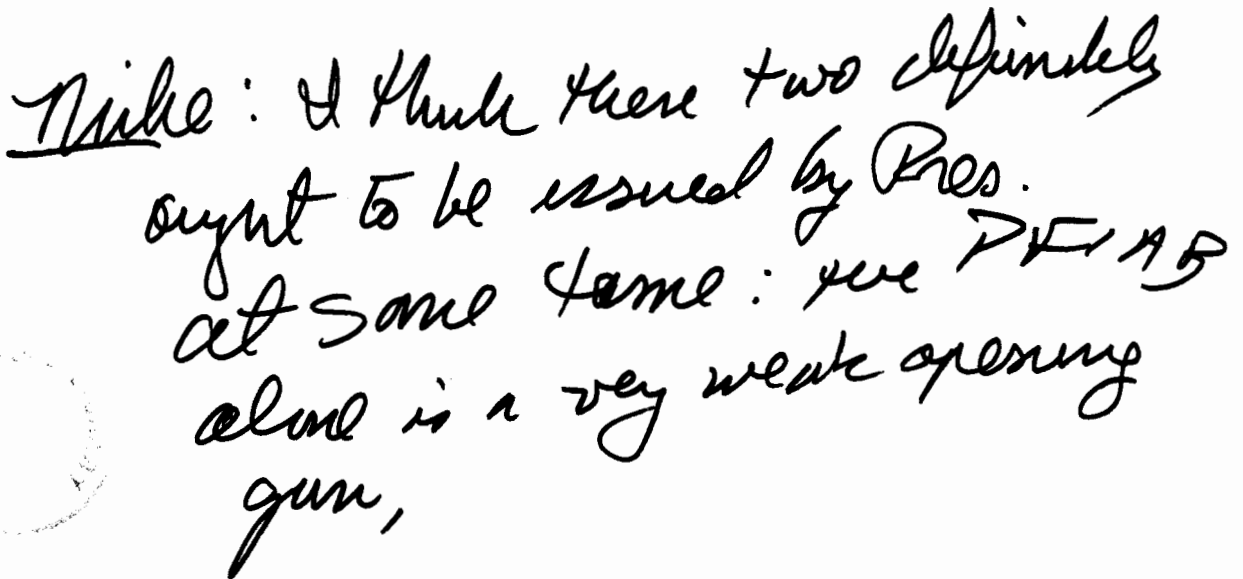 Mike: I think these two definitely
ought to be issued by Pres.
at same time: the PFIAB
alone is a very weak opening
gun,